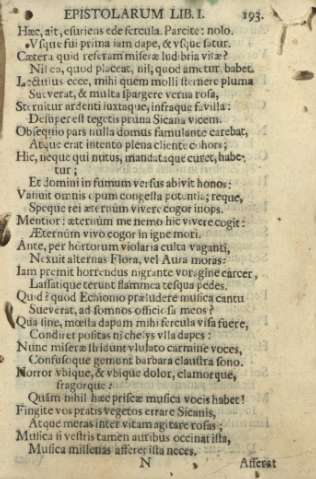 EPISTOLARUM LIB. I. 193.
Hæc, ait, esuriens ede fercula. Parcite: nolo.
Vsque fui prima iam dape, & vsque satur.
Cætera quid referam miseræ ludibria vitæ?
Nil ea, quod placeat, nil, quod ametur habet.
Lectulus ecce, mihi quem molli sternere pluma
Sueverat, & multa spargere verna rosa,
Sternitur ardenti iuxtaque, infraque favilla:
Desuper est tegetis pruna Sicana vicem.
Obsequio pars nulla domus famulante carebat,
Atque erat intento plena cliente cohors;
Hic, neque qui nutus, mandataque curet, habe-
tur;
Et domini in fumum versus abivit honos:
Vanuit omnis opum congesta potentia; reque,
Speque rei æternùm vivere cogor inops.
Mentior: æternùm me nemo hîc vivere cogit:
Æternùm vivo cogor in igne mori.
Ante, per hortorum violaria culta vaganti,
Nexuit alternas Flora, vel Aura moras:
Iam premit horrendus nigrante voragine carcer,
Lassatique terunt flammea tesqua pedes.
Quid? quod Echionio præludere musica cantu
Sueverat, ad somnos officiosa meos?
Qua sine, mœsta dapum mihi fercula visa fuere,
Condiret positas ni chelys vlla dapes:
Nunc miseræ stridunt vlulato carmine voces,
Confusoque gemunt barbara claustra sono.
Horror vbique, & vbique dolor, clamorque,
fragorque:
Quàm nihil hæc priscæ musica vocis habet!
Fingite vos pratis vegetos errare Sicanis,
Atque meras inter vitam agitare rosas;
Musica si vestris tamen auribus occinat ista,
Musica millenas afferet ista neces.
N Afferat